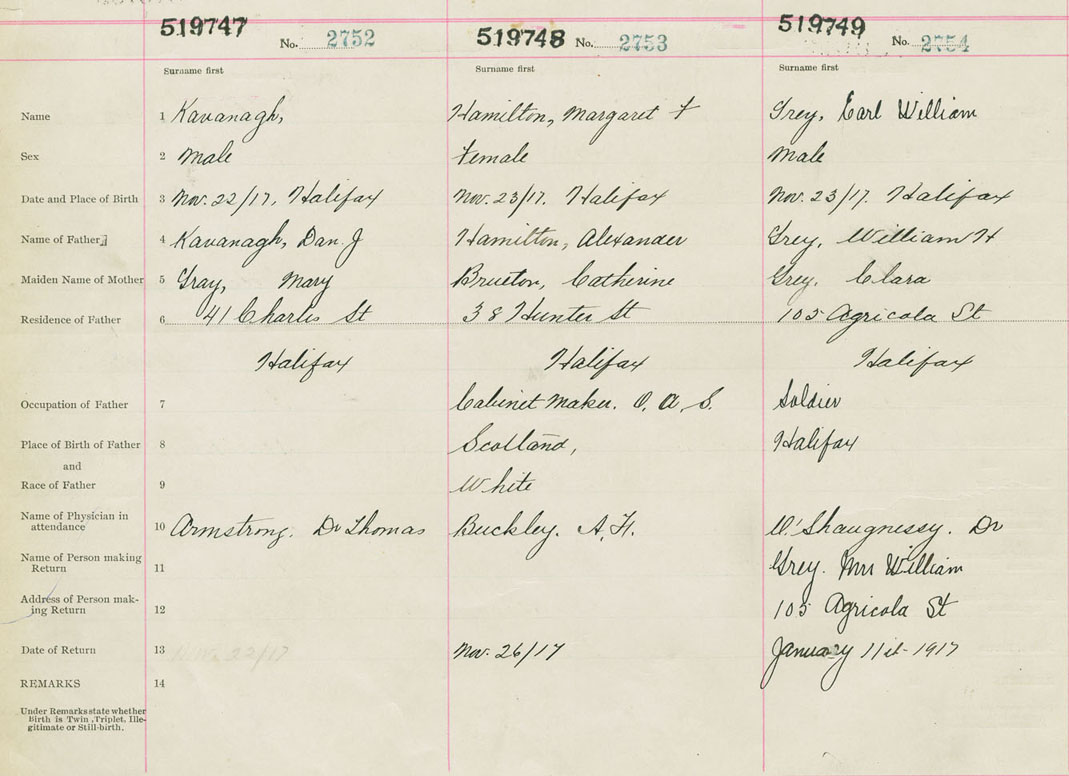 519747 No. 2752 519748 No. 2753 519749 No. 2754
Surname first Surname first Surname first
Name 1 Kavanagh, Hamilton, Margaret F Grey, Earl William
Sex 2 Male Female Male
Date and Place of Birth 3 Nov. 22/17, Halifax Nov. 23/17. Halifax Nov. 23/17. Halifax
Name of Father 4 Kavanagh, Dan. J Hamilton, Alexander Grey, William H
Maiden Name of Mother 5 Gray, Mary Brueton, Catherine Grey. Clara
Residence of Father 6 41 Charles St 38 Hunter St 105 Agricola St
Halifax Halifax Halifax
Occupation of Father 7 Cabinet Maker. O. A. S. Soldier
Place of Birth of Father 8 Scotland, Halifax
and
Race of Father 9 White
Name of Physician in
attendance 10 Armstrong. Dr Thomas Buckley. A. H. O'Shaugnessy. Dr
Name of Person making
Return 11 Grey. Mrs William
Address of Person mak-
ing Return 12 105 Agricola St
Date of Return 13 Nov. 22/17 Nov. 26/17 January 11 1917
REMARKS 14
Under Remarks state whether
Birth is Twin, Triplet, Ille-
gitimate or Still-birth.